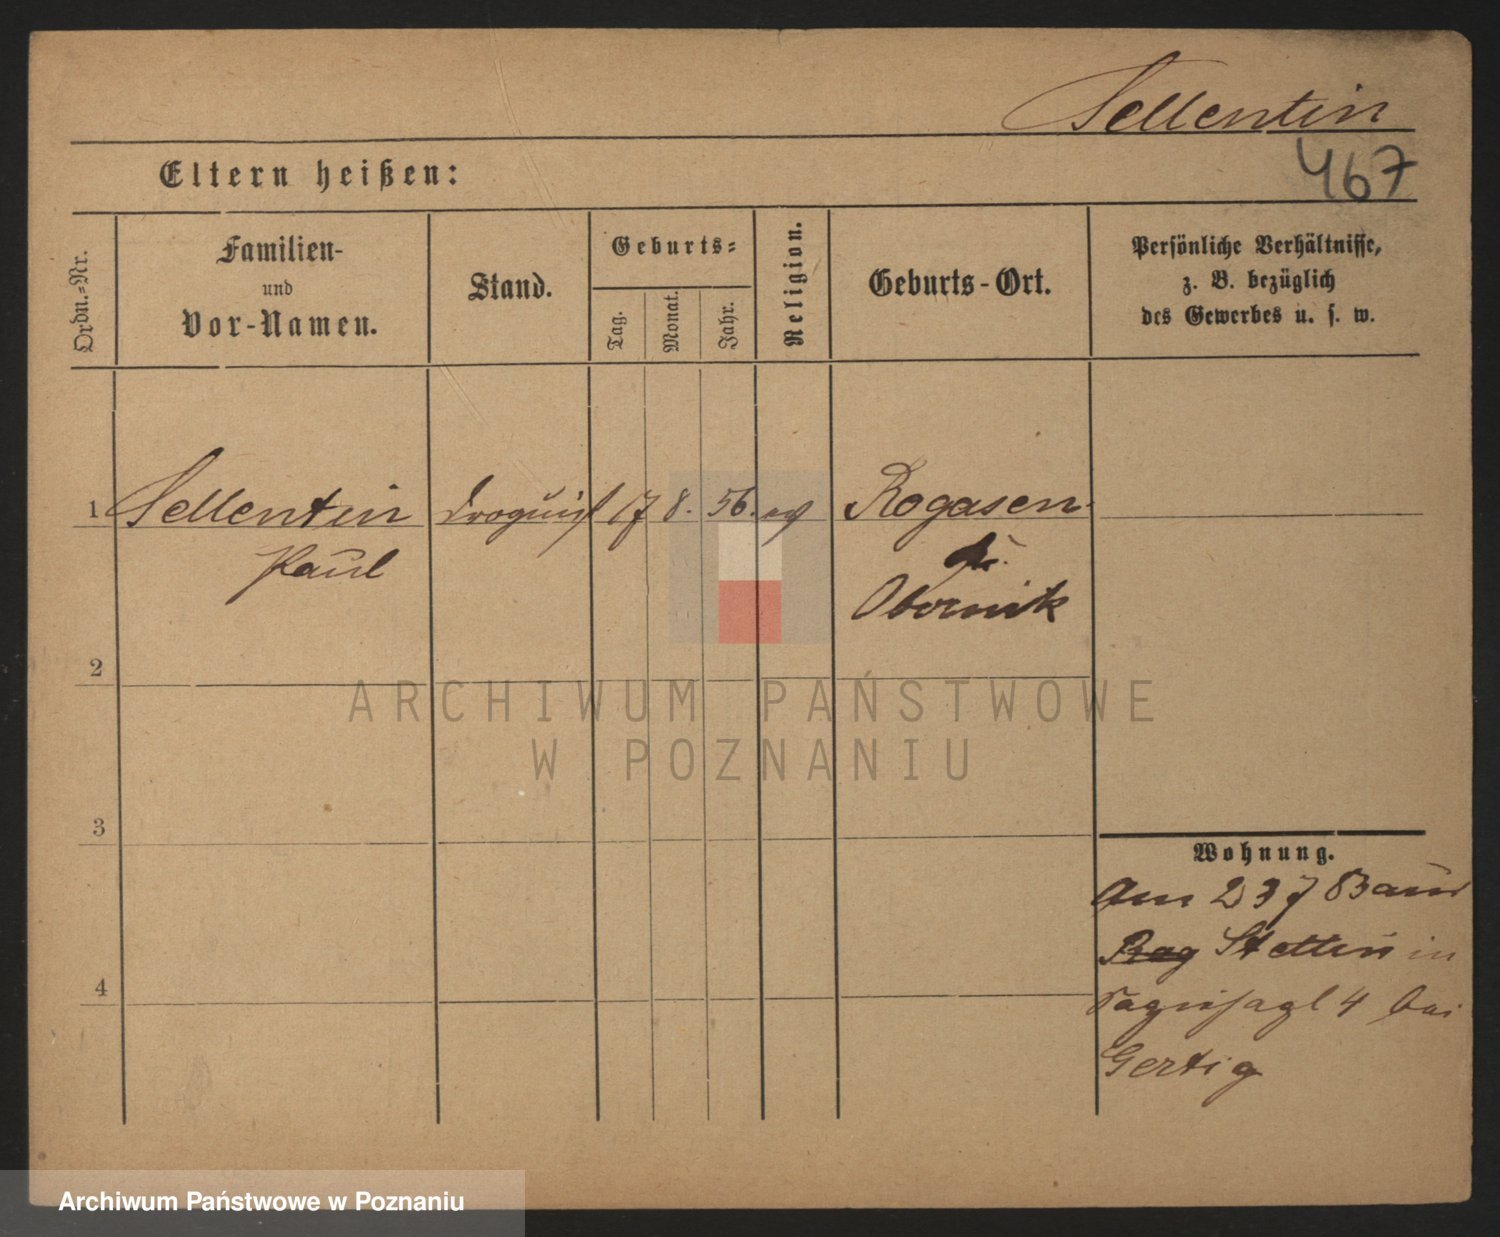 Sellentin
Eltern heißen:
467
Ordn.-Nr.
Familien-
und
Vor-Namen.
Stand.
Geburts-
Tag.
Monat.
Jahr.
Religion.
Geburts-Ort.
Persönliche Verhältnisse,
z. B. bezüglich
des Gewerbes u. s. w.
1 Sellentin Droguist 17 8. 56. ev Rogasen
Paul
Obornik
2
ARCHIWUM PAŃSTWOWE
W POZNANIU
3
Wohnung.
Am 23 7
Stettin in
4
4 bei
Gertig
Archiwum Państwowe w Poznaniu